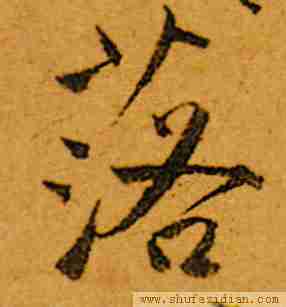 落
www.shufazidian.com